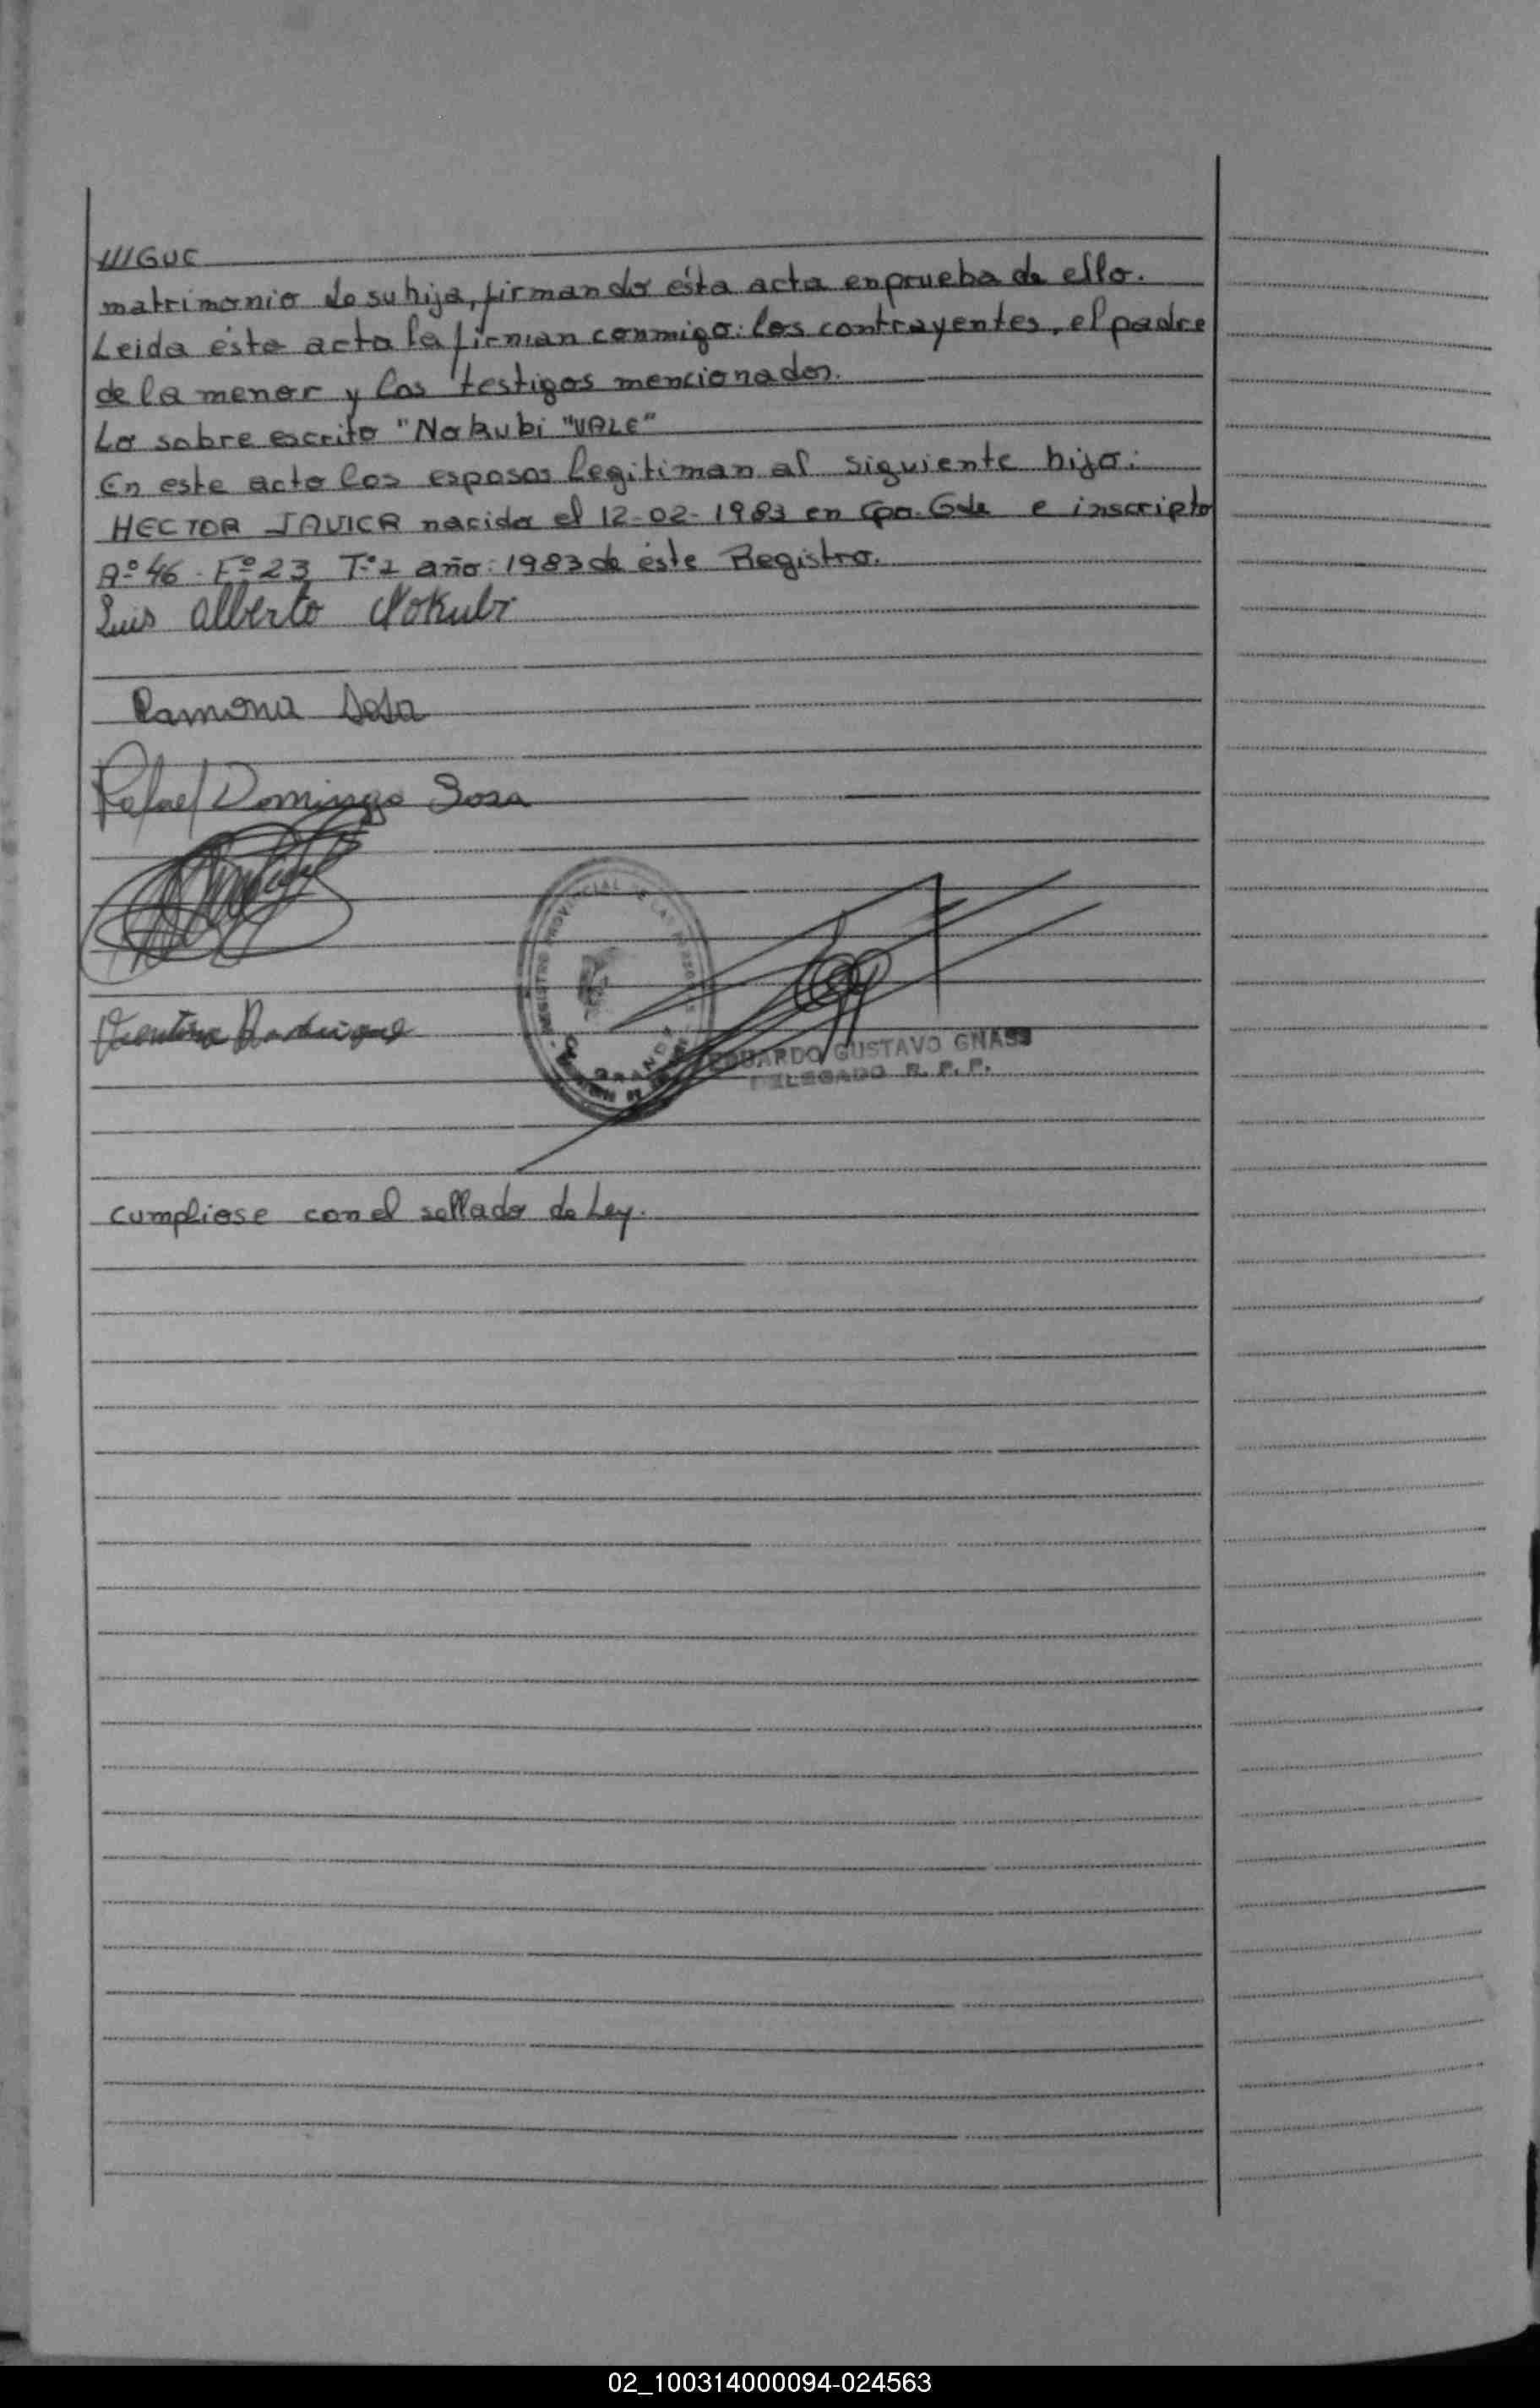 ///GUE
matrimonio de su hija, firmando ésta acta en prueba de ello.
Leida ésta acta la firman conmigo: los contrayentes, el padre
de la menor y los testigos mencionados.
Lo sobre escrito "Nokubi "VALE"
En este acto los esposos legitiman al siguiente hijo:
HECTOR JAVIER nacido el 12-02-1983 en Cpo. Gde e inscripto
Aº 46 - Fº 23 Tº 1 año: 1983 de éste Registro.
Luis Alberto Nokubi
Ramona Sosa
Rafael Domingo Sosa
REGISTRO PROVINCIAL DE LAS PERSONAS
GRANDE
Rodriguez
EDUARDO GUSTAVO GNASS
DELEGADO R. P. P.
cumpliose con el sellado de Ley.
02_100314000094-024563